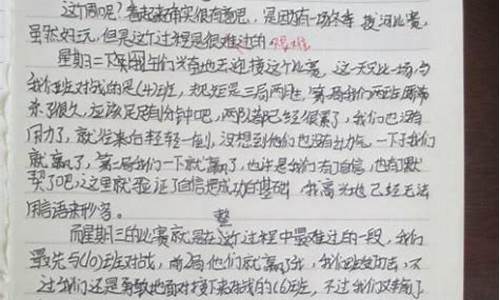 这个周呢？看起来确实很有意思，是因为有一场冬季拔河比赛，
虽然好玩，但是这个过程是很难过的 艰难
星期二下午我们兴奋地去迎接这个比赛，这一天只比一场与
我们班对战的是(4)班，规矩是三局两胜，第一局我们两班
来了很久，应该足足有1分钟吧，两队都已经很累了，我们也没有
用力了，就往来白轻轻一制，没想到他们也没有出力气，一下子我们
就赢了，第二局我们一下就赢了，也许是我们有了自信，也有了默
契了吧，这里就验证了自信把成功的基础，我高兴地已经无法
用言语来形容。
整
而星期三的比赛就是在这个过程中最难过的一段，我们
最先与(10)班对战，前2局他们就赢了我，我们班没功击，不
过我们还是勇敢地面对接下来对战的(6)班，不过我们又输了